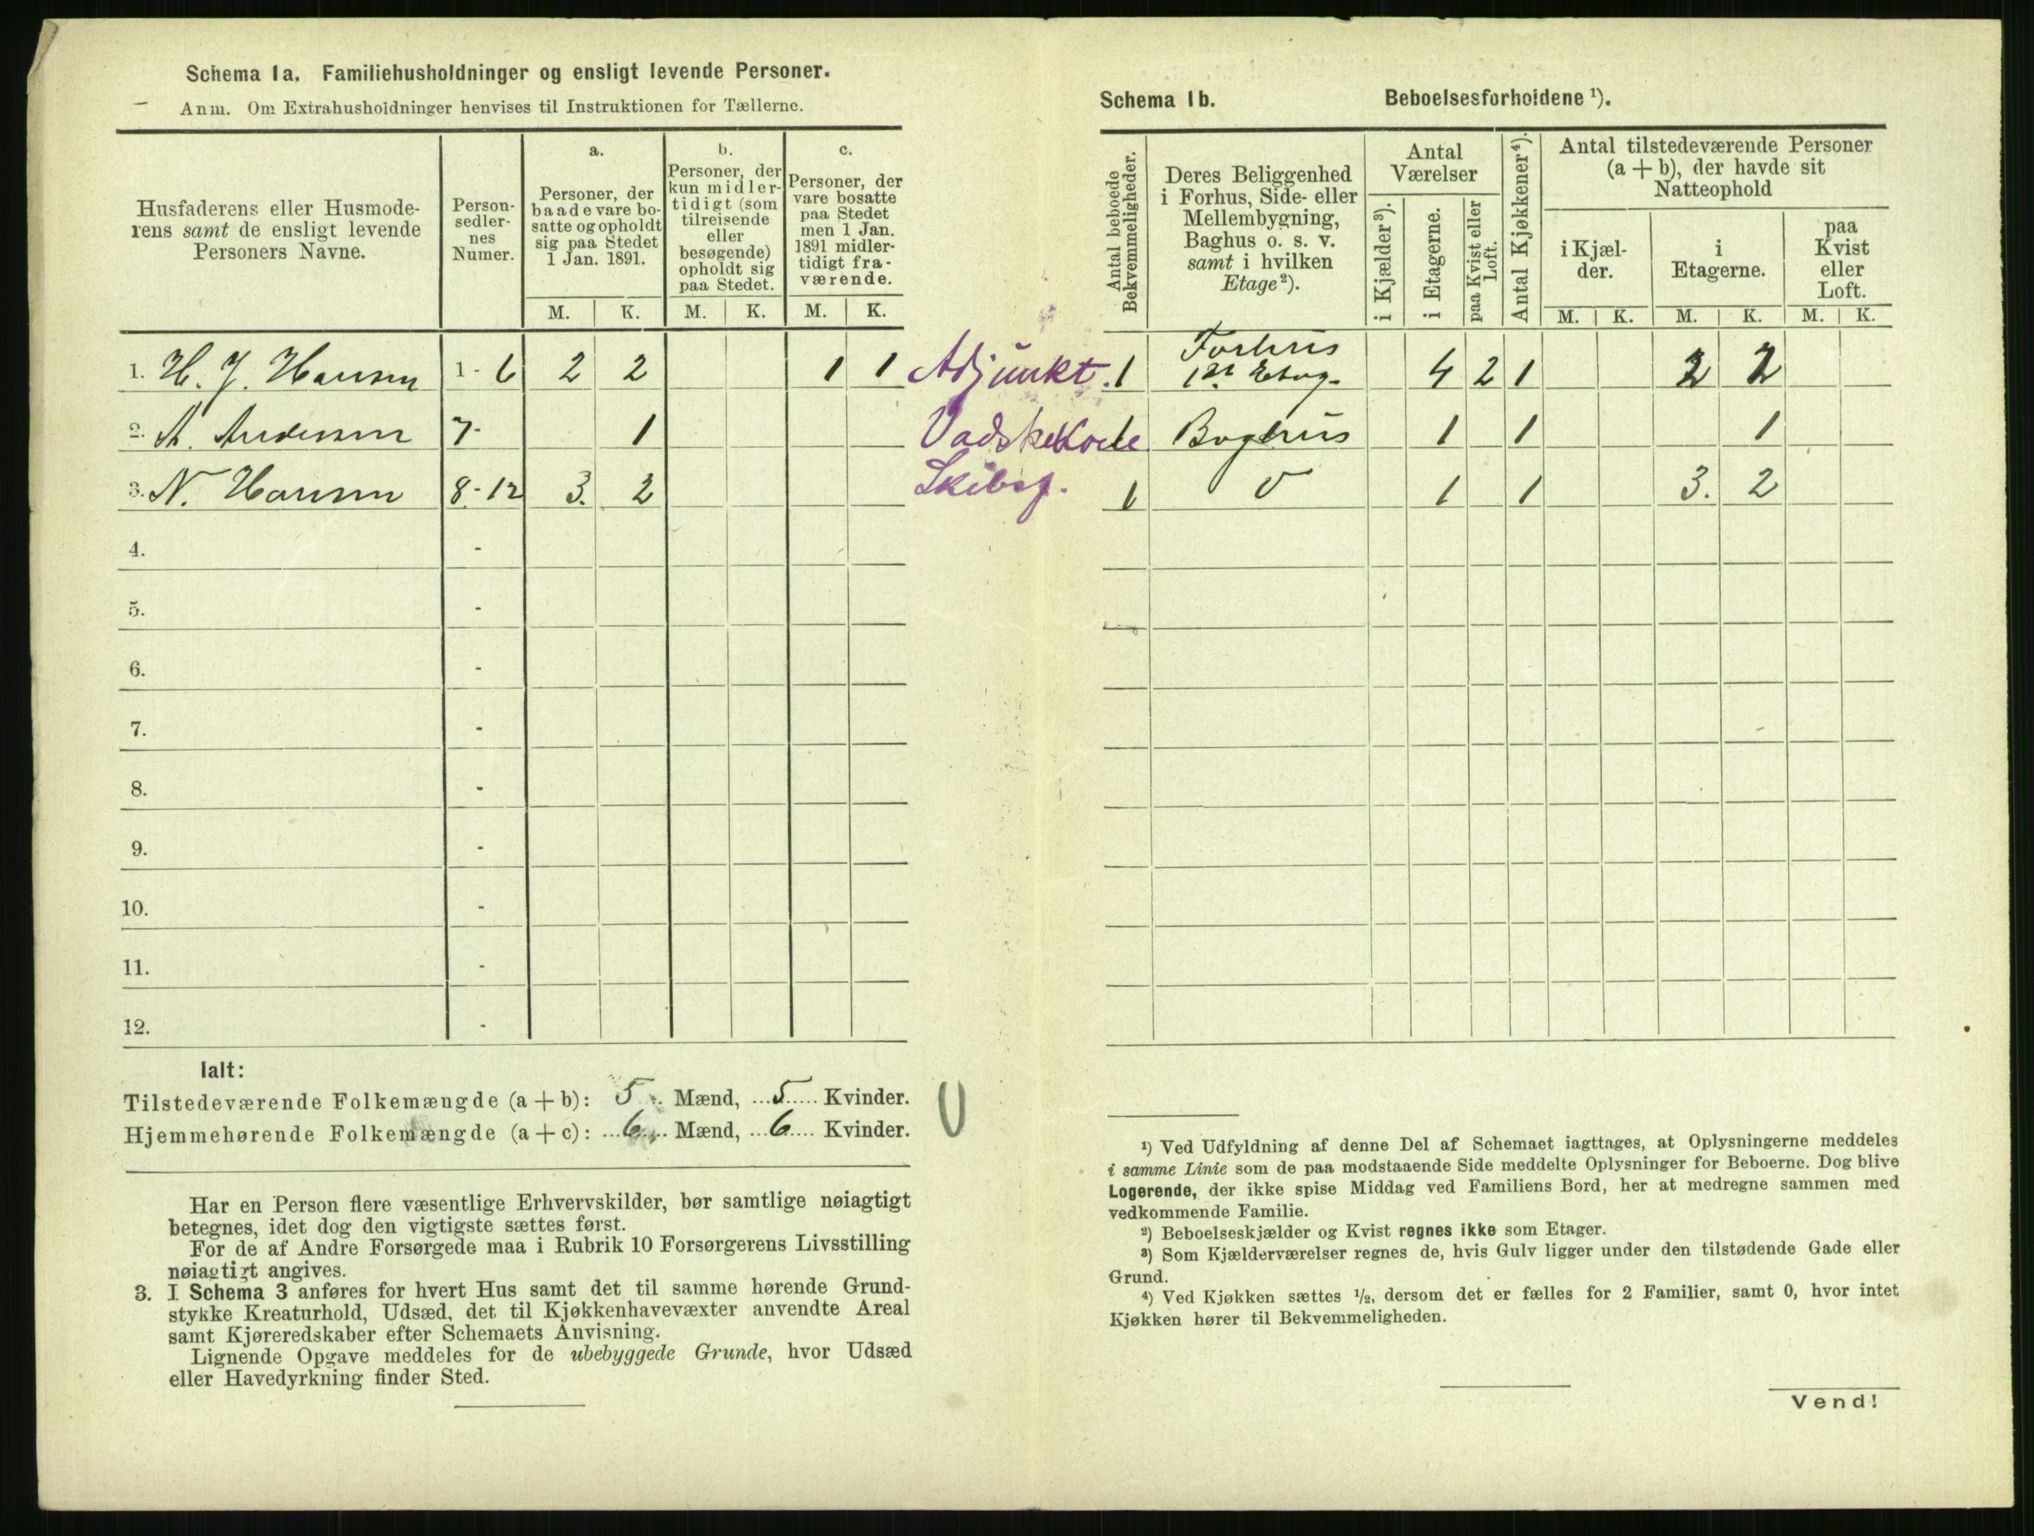 Schema 1a. Familiehusholdninger og ensligt levende Personer.
Anm. Om Extrahusholdninger henvises til Instruktionen for Tællerne.
Husfaderens eller Husmode-
rens samt de ensligt levende
Personers Navne.
Person-
sedler-
nes
Numer.
a.
Personer, der
baade vare bo-
satte og opholdt
sig paa Stedet
1 Jan. 1891.
b.
Personer, der
kun midler-
tidigt (som
tilreisende
eller
besøgende)
opholdt sig
paa Stedet.
c.
Personer, der
vare bosatte
paa Stedet
men 1 Jan.
1891 midler-
tidigt fra-
værende.
M. K. M. K. M. K.
1. H. J. Hansen 1 - 6 2 2 1 1
2. A. Andersen 7 - 1
3. N. Hansen 8 - 12 3. 2
4. -
5. -
6. -
7. -
8. -
9. -
10. -
11. -
12. -
Ialt:
Tilstedeværende Folkemængde (a + b): 5 Mænd, 5 Kvinder.
Hjemmehørende Folkemængde (a + c): 6 Mænd, 6 Kvinder.
Har en Person flere væsentlige Erhvervskilder, bør samtlige nøiagtigt
betegnes, idet dog den vigtigste sættes først.
For de af Andre Forsørgede maa i Rubrik 10 Forsørgerens Livsstilling
nøiagtigt angives.
3. I Schema 3 anføres for hvert Hus samt det til samme hørende Grund-
stykke Kreaturhold, Udsæd, det til Kjøkkenhavevæxter anvendte Areal
samt Kjøreredskaber efter Schemaets Anvisning.
Lignende Opgave meddeles for de ubebyggede Grunde, hvor Udsæd
eller Havedyrkning finder Sted.
Schema 1b. Beboelsesforholdene ¹).
Antal beboede
Bekvemmeligheder.
Deres Beliggenhed
i Forhus, Side- eller
Mellembygning,
Baghus o. s. v.
samt i hvilken
Etage²).
Antal
Værelser
i Kjælder³).
i Etagerne.
paa Kvist eller
Loft.
Antal Kjøkkener⁴).
Antal tilstedeværende Personer
(a + b), der havde sit
Natteophold
i Kjæl-
der.
i
Etagerne.
paa
Kvist
eller
Loft.
M. K. M. K. M. K.
Adjunkt. 1 Forhus 1st Etag. 4 2 1 2 2
1 Baghus 1 1 1
Skibsf. 1 1 1 3. 2
¹) Ved Udfyldning af denne Del af Schemaet iagttages, at Oplysningerne meddeles
i samme Linie som de paa modstaaende Side meddelte Oplysninger for Beboerne. Dog blive
Logerende, der ikke spise Middag ved Familiens Bord, her at medregne sammen med
vedkommende Familie.
²) Beboelseskjælder og Kvist regnes ikke som Etager.
³) Som Kjælderværelser regnes de, hvis Gulv ligger under den tilstødende Gade eller
Grund.
⁴) Ved Kjøkken sættes ½, dersom det er fælles for 2 Familier, samt 0, hvor intet
Kjøkken hører til Bekvemmeligheden.
Vend!